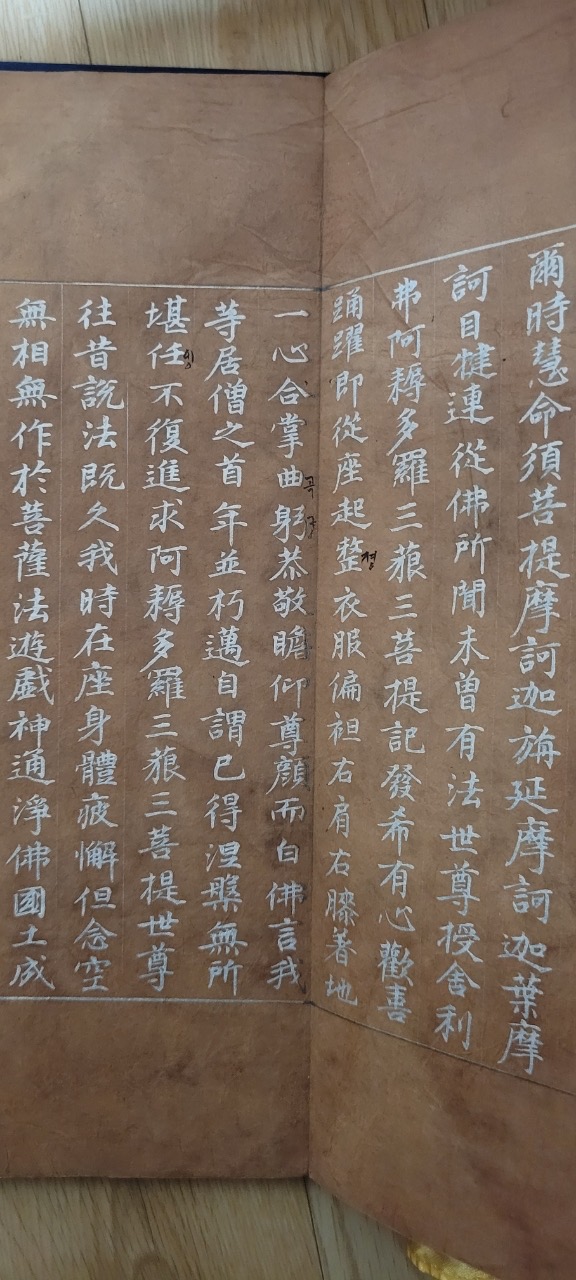 爾時慧命須菩提摩訶迦旃延摩訶迦葉摩
訶目揵連從佛所聞未曾有法世尊授舍利
弗阿耨多羅三藐三菩提記發希有心歡喜
踊躍即從座起整衣服偏袒右肩右膝著地
경
一心合掌曲躬恭敬瞻仰尊顔而白佛言我
곡
궁
等居僧之首年並朽邁自謂已得涅槃無所
堪任不復進求阿耨多羅三藐三菩提世尊
往昔說法旣久我時在座身體疲懈但念空
無相無作於菩薩法遊戱神通淨佛國土成